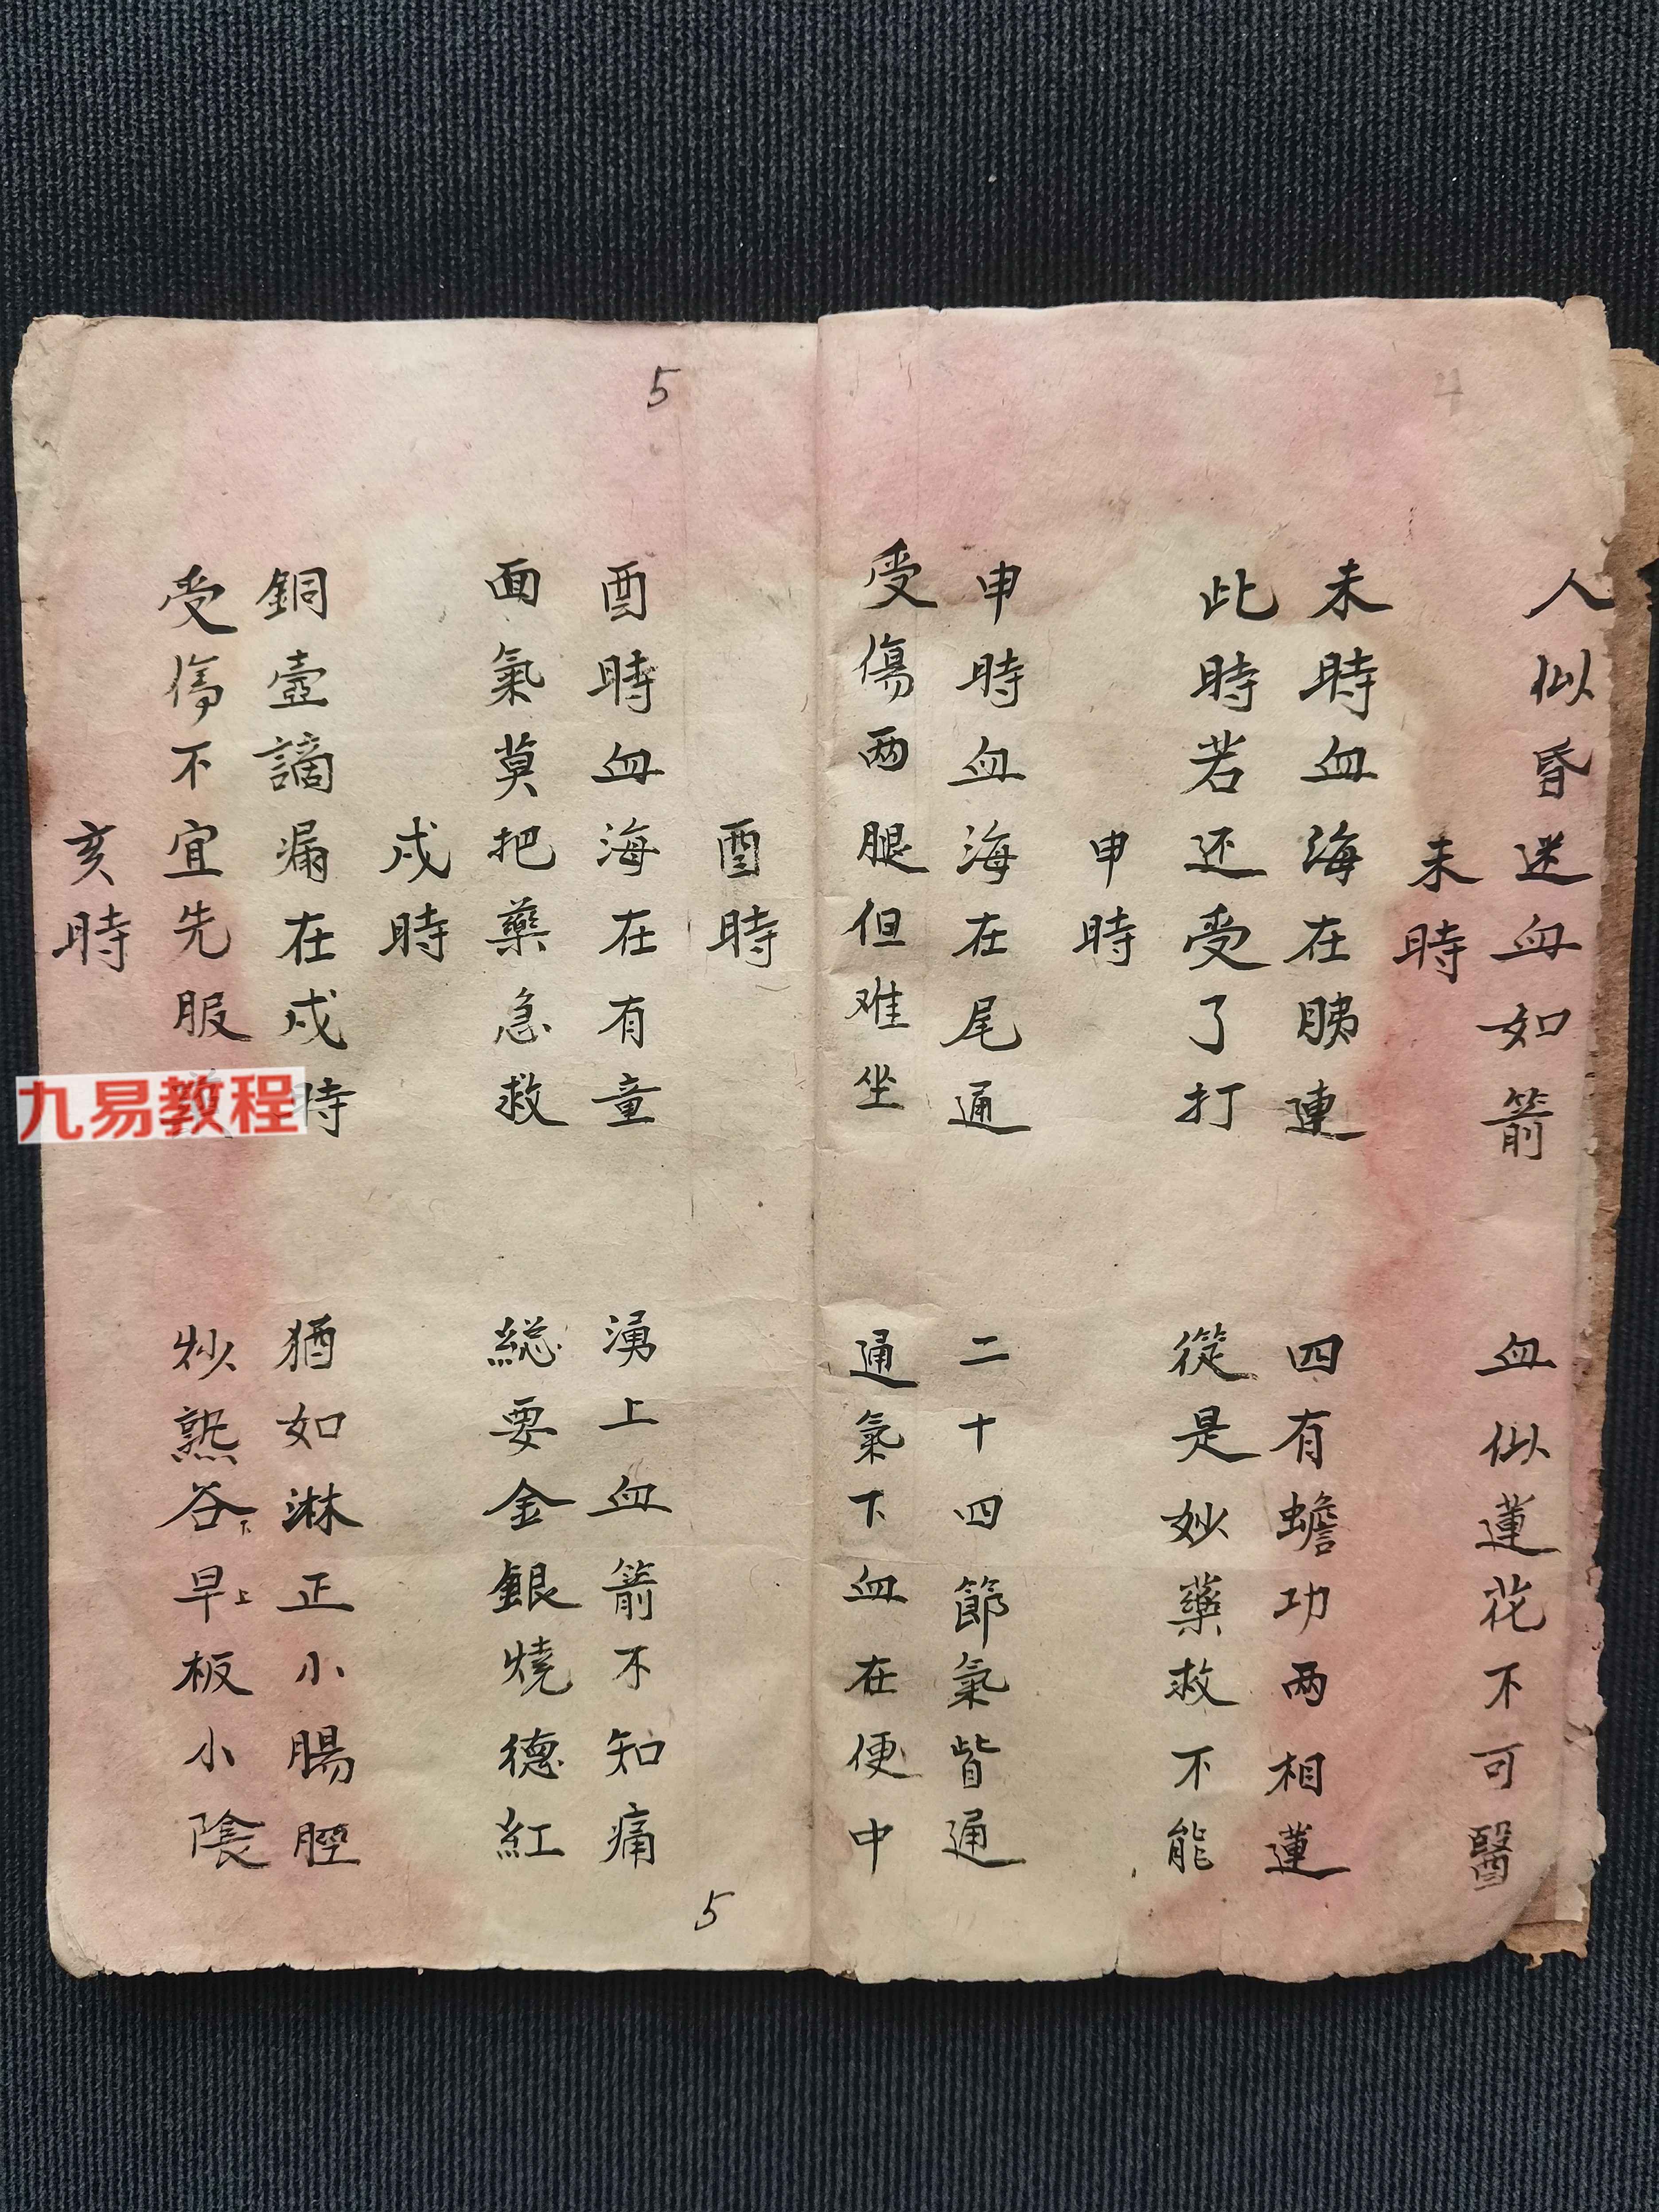 4
人似昏迷血如箭 血似蓮花不可醫
未時
未時血海在胰連 四有蟾功两相蓮
此時若还受了打 從是妙藥救不能
申時
申時血海在尾通 二十四節氣皆通
受傷两腿但难坐 通氣下血在便中
5
酉時
酉時血海在有童 湧上血箭不知痛
面氣莫把藥急救 総要金銀燒德紅
戍時
銅壺謫漏在戍時 猶如淋正小腸脛
受傷不宜先服 炒熟谷下早上板小陰
亥時
5
九易教程